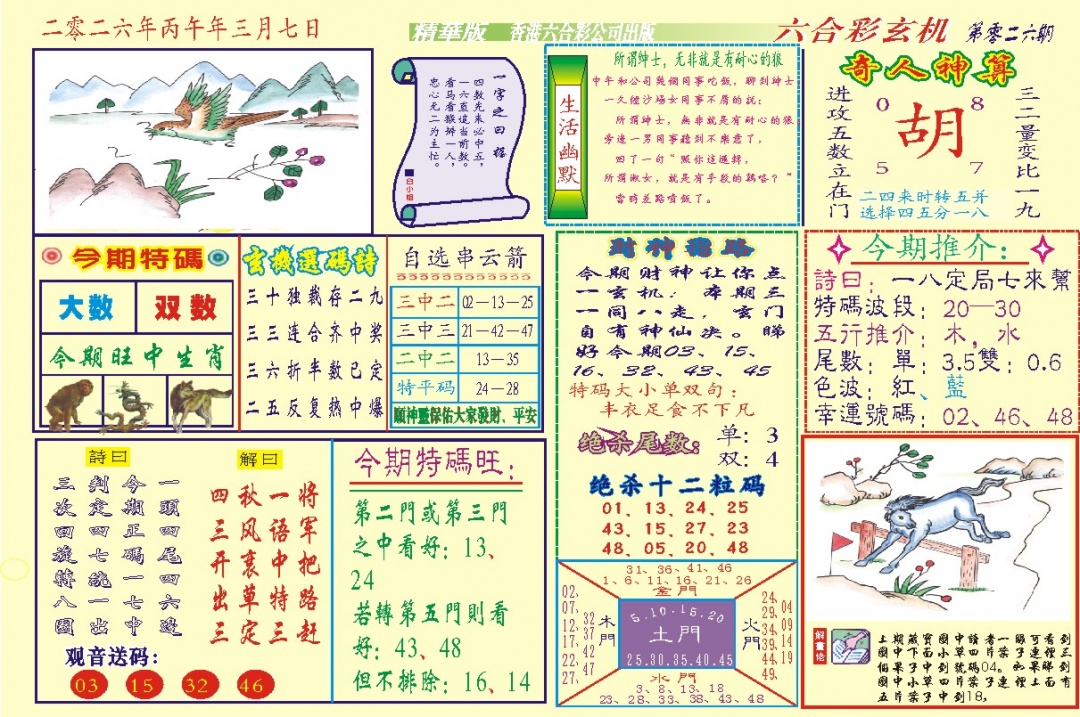 二零二六年丙午年三月七日
精華版 香港六合彩公司出版
六合彩玄机 第零二六期
一字之曰:猪
四数先来必中五,
一六直追当前数。
看马看猴辨一人,
忠心无二为主忙。
白小姐
生活幽默
所谓绅士,无非就是有耐心的狼
中午和公司幾個同事吃飯,聊到紳士
一久經沙場女同事不屑的說:
所謂紳士,無非就是有耐心的狼
旁邊一男同事聽到不樂意了,
回了一句“照你這邏輯,
所謂淑女,就是有手段的鷄咯?”
當時差點噴飯了。
奇人神算
进攻五数立在门
0 8
胡
5 7
三二量变比一九
二四来时转五并
选择四五分一八
今期特碼
大数 双数
今期旺中生肖
玄機選碼詩
三十独裁存二九
三三连合齐中奖
三六折半数已定
二五反复热中爆
自选串云箭
三中二 02—13—25
三中三 21—42—47
二中二 13—35
特平码 24—28
願神靈保佑大家發財、平安
财神指路
今期财神让你点
一玄机:本期三
一同八走,玄门
自有神仙决。睇
好今期03、15、
16、32、43、45
特码大小单双句:
丰衣足食不下凡
绝杀尾数: 单:3
双:4
绝杀十二粒码
01、13、24、25
43、15、27、23
48、05、20、48
今期推介:
詩曰:一八定局七來幫
特碼波段:20—30
五行推介:木,水
尾數:單:3.5雙:0.6
色波:紅、藍
幸運號碼:02、46、48
詩曰
一頭四尾四六邊
今期正碼一七中
判定四七統一出
三次回旋轉八圖
解曰
将军把路赶
一语中特三
秋风裏草定
四三开出三
观音送码:
03 15 32 46
今期特碼旺:
第二門或第三門
之中看好:13、
24
若轉第五門則看
好:43、48
但不排除:16、14
31、36、41、46
1、6、11、16、21、26
金門
02、07、12、17、22、27、
32
37
42
47
木門
5.10.15.20
土門
25.30.35.40.45
火門
24、29、34、39、44、49
04
09
14
19
水門
3、8、13、18
23、28、33、38、43、48
解畫佬
上期藏寶圖中讀者一眼可看到
圖中下面小草四片葉子連裡三
個果子中到號碼04。如果睇到
圖中小草四片葉子連裡上面有
五片葉子中到18,